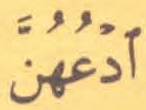 اُدْعُهُنَّ